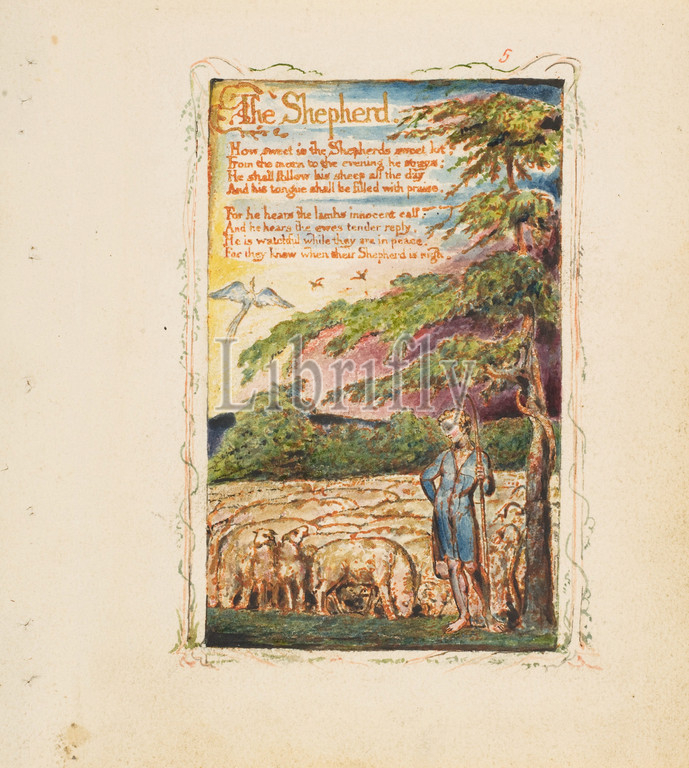 5
The Shepherd.
How sweet is the Shepherds sweet lot,
From the morn to the evening he strays:
He shall follow his sheep all the day
And his tongue shall be filled with praise.
For he hears the lambs innocent call,
And he hears the ewes tender reply,
He is watchful while they are in peace,
For they know when their Shepherd is nigh.
Librifly